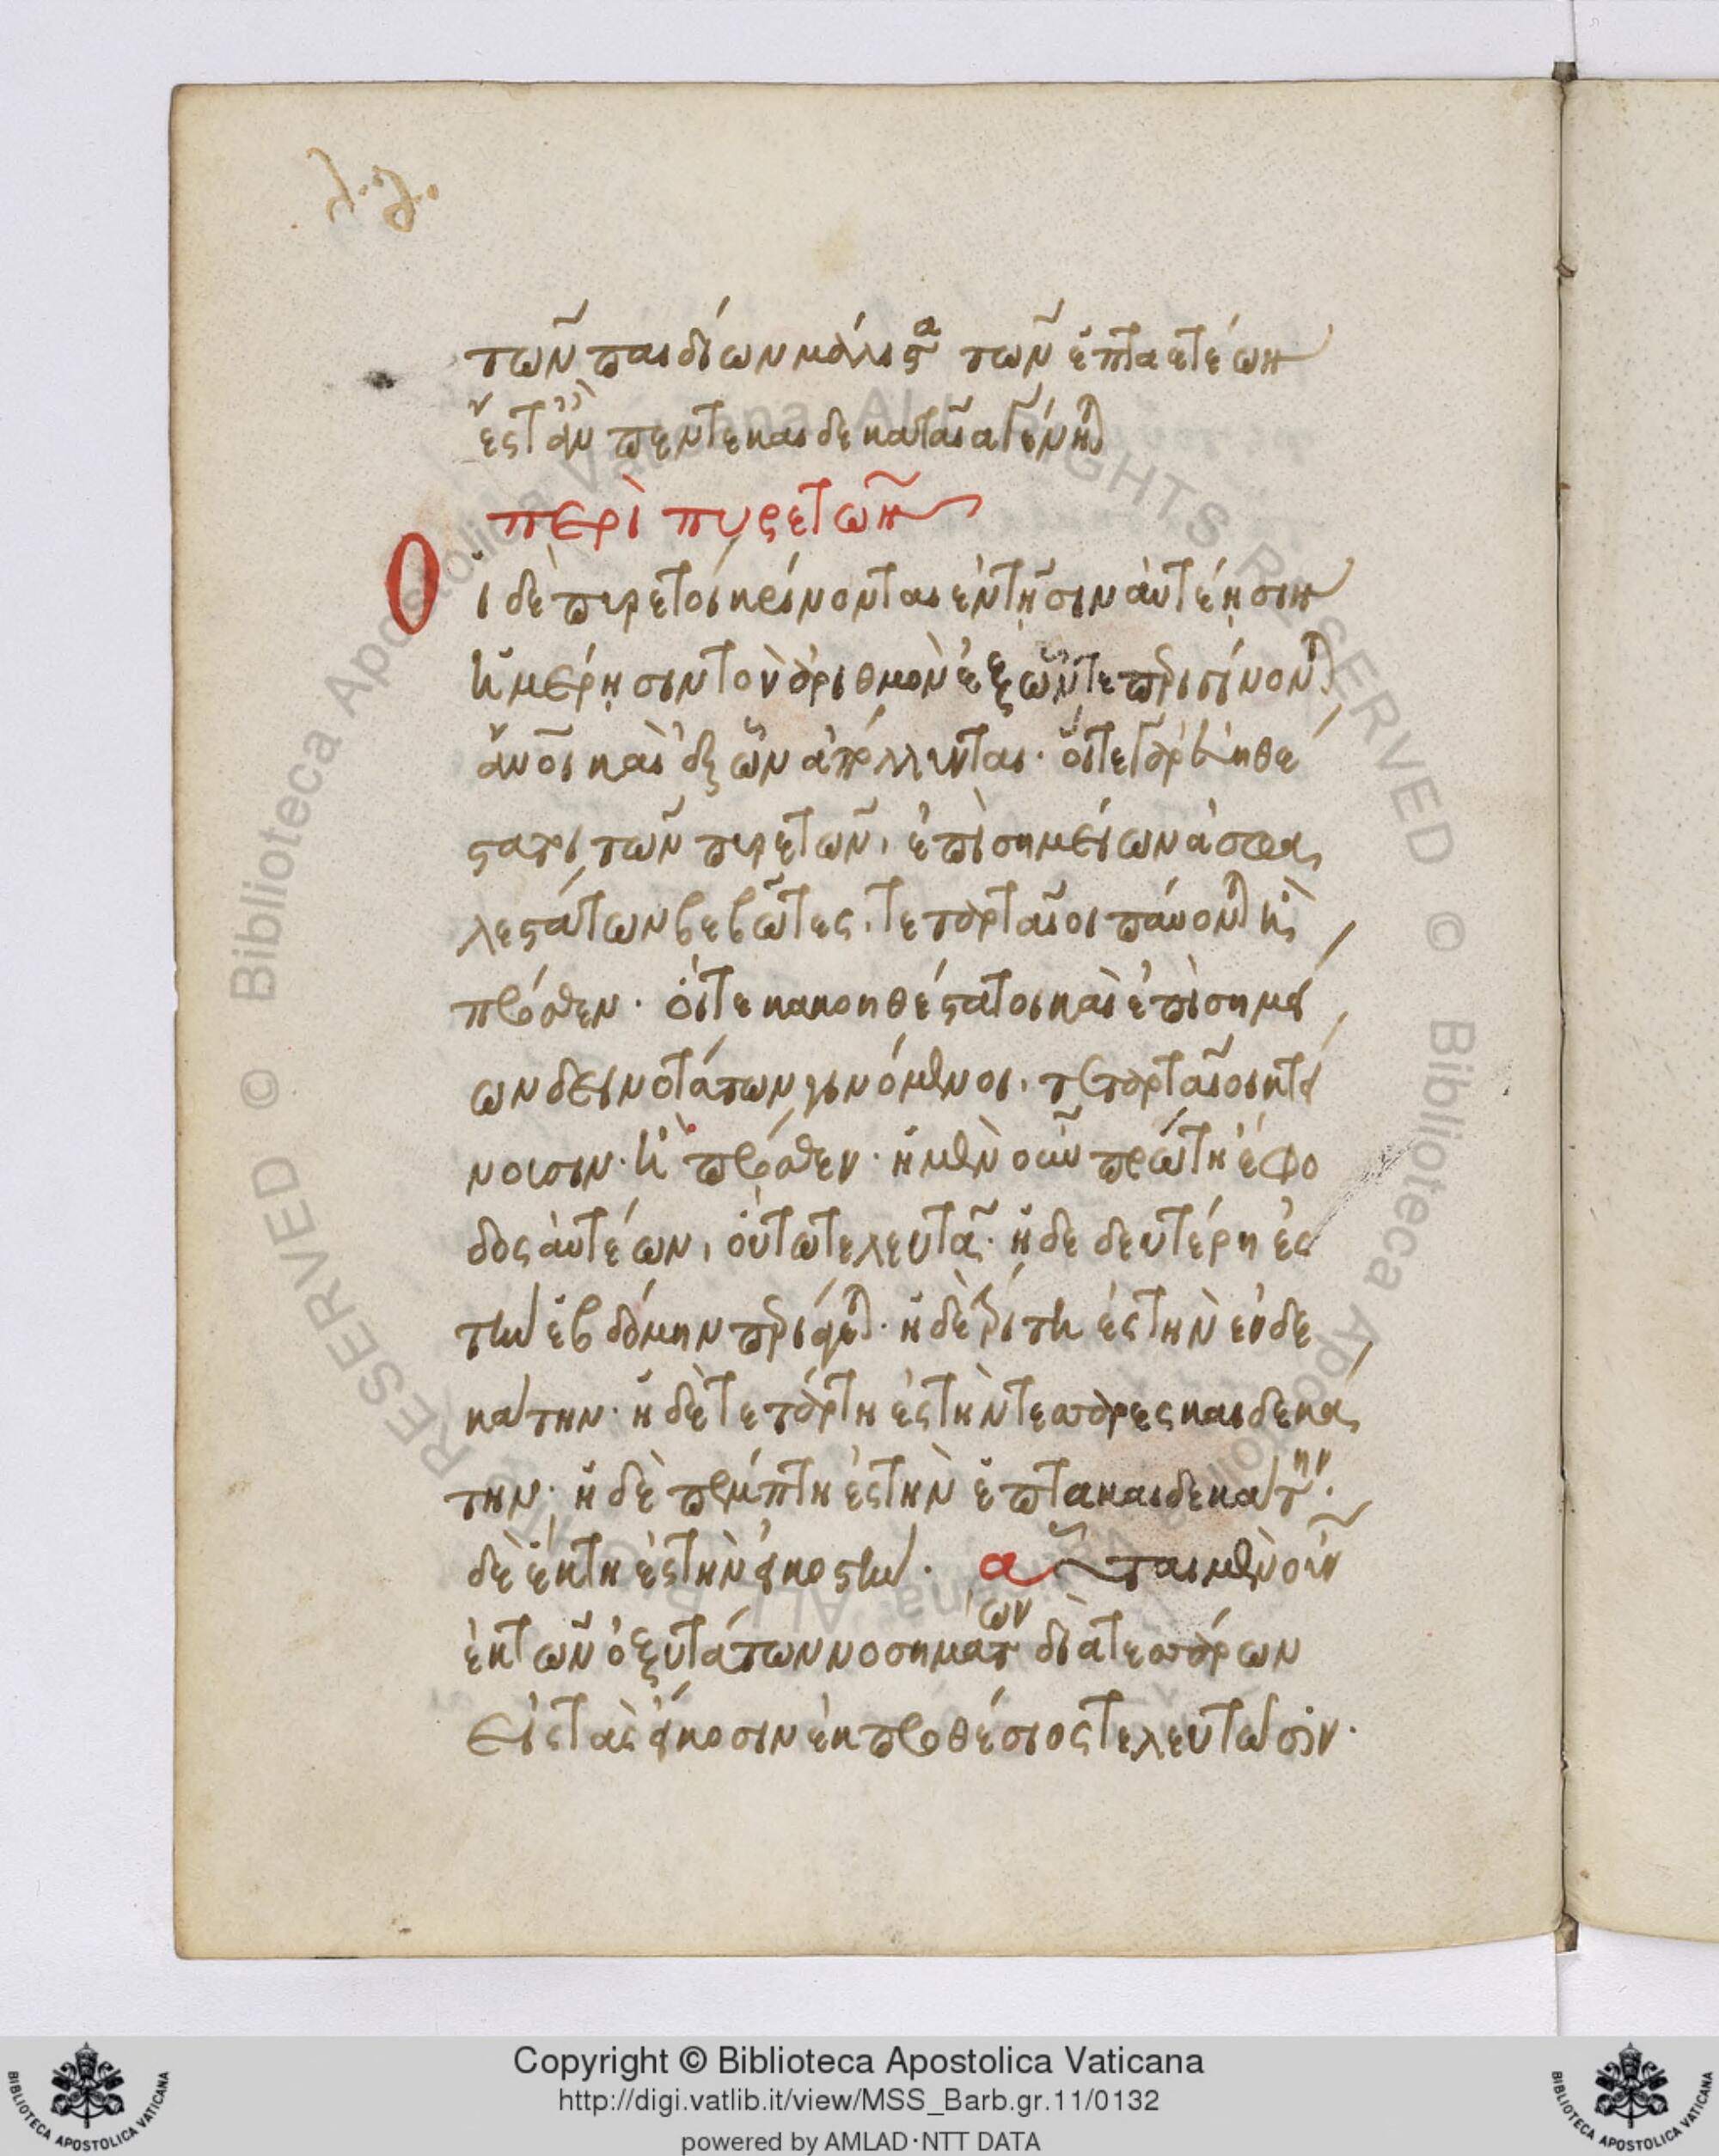 λ.δ.
τῶν παιδίων μάλιστα τῶν ἑπταετέων
ἔστ' ἂν πεντεκαιδεκαταῖα γένηται
περὶ πυρετῶν
Οἱ δὲ πυρετοὶ κρίνονται ἐν τῇσιν αὐτέῃσιν
ἡμέρῃσιν τὸν ἀριθμὸν ἐξ ὧν τε περιγίνονται
ἄνοι καὶ ἐξ ὧν ἀπόλλυνται· οἵτε γὰρ εὐηθέ
στατοι τῶν πυρετῶν, ἐπὶ σημείων ἀσφα
λεστάτων βεβῶτες, τεταρταῖοι παύονται ἢ
πρόσθεν· οἵτε κακοηθέστατοι καὶ ἐπὶ σημεί
ων δεινοτάτων γινόμενοι, τεταρταῖοι κτεί
νοισιν· ἢ πρόσθεν· ἡ μὲν οὖν πρώτη ἔφο
δος αὐτέων, οὕτω τελευτᾶ· ἡ δὲ δευτέρη ἐς
τὴν ἑβδόμην περιάγεται· ἡ δὲ τρίτη ἐς τὴν ἑνδε
κάτην· ἡ δὲ τετάρτη ἐς τὴν τεσσαρεσκαιδεκά
την· ἡ δὲ πέμπτη ἐς τὴν ἑπτακαιδεκάτην·
δὲ ἕκτη ἐς τὴν εἰκοστήν· αὗται μὲν οὖν
ἐκ τῶν ὀξυτάτων νοσημάτων διὰ τεσσάρων
εἰς τὰς εἴκοσιν ἐκ προθέσιος τελευτῶσιν·
Copyright © Biblioteca Apostolica Vaticana
http://digi.vatlib.it/view/MSS_Barb.gr.11/0132
powered by AMLAD·NTT DATA